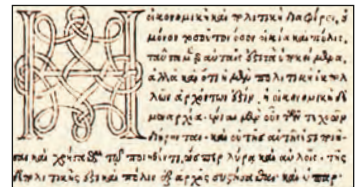 Η οἰκονομικὴ καὶ πολιτικὴ διαφέρει, ὀυ
μόνον τοσοῦτον ὅσον οἰκία καὶ πόλις,
ταῦτα μὲν αὐταῖς ἐστι τὰ ὑποκείμενα,
ἀλλὰ καὶ ὅτι ἡ μὲν πολιτικὴ ἐκ πολ
λῶν ἀρχόντων ἐστίν, ἡ οἰκονομικὴ δὲ
μοναρχία. ἔνιαι μὲν οὖν τῶν τεχνῶν
διῄρηνται· καὶ οὐ τῆς αὐτῆς ἐστι ποιῆ
σαι καὶ χρήσασθαι τῷ ποιηθέντι, ὥσπερ λύρα καὶ αὐλοῖς· τῆς
δὲ πολιτικῆς ἐστι καὶ πόλιν ἐξ ἀρχῆς συστήσασθαι καὶ ὑπαρ